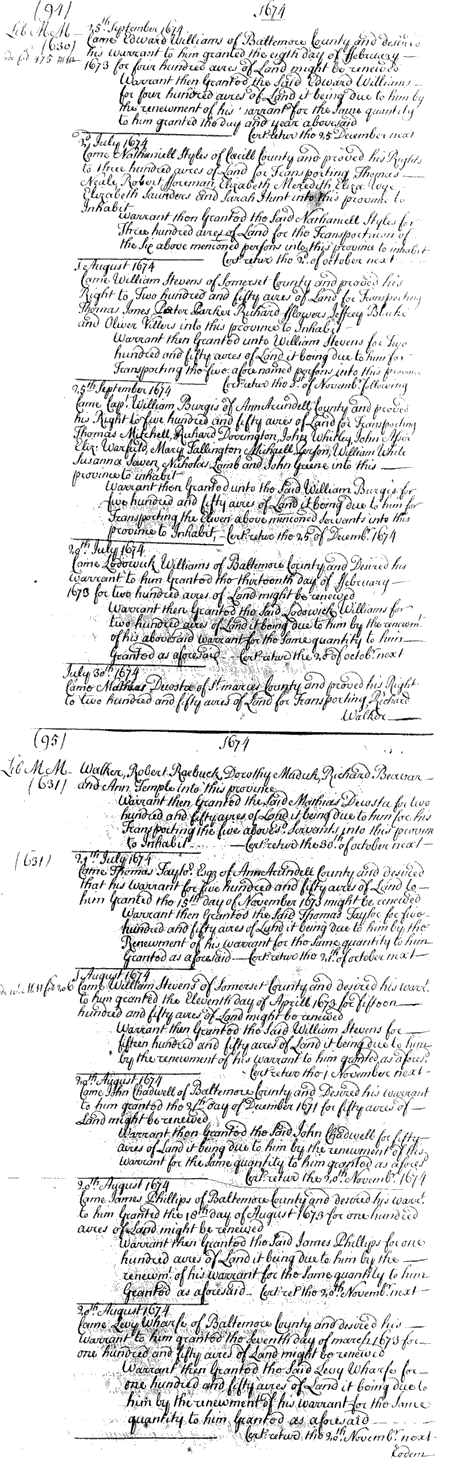 (94) 1674
Lib M M 25th September 1674
(630) Came Edward Williams of Baltemore County and desired
his warrant to him granted the eigth day of ffebruary
1673 for four hundred acres of Land might be renewed
Warrant then Granted the Said Edward Williams
for four hundred acres of Land it being due to him by
the renewment of his warrant for the Same quantity
to him granted the day and year abovesaid
Cert: retur the 25 December next
July 1674
Came Nathaniell Styles of Cecill County and proved his Rights
to three hundred acres of Land for Transporting Thomas
Neale Robert fforeman Elizabeth Meredith Eliza Wye
Elizabeth Saunders and Sarah Hunt into this province to
Inhabit
Warrant then Granted the Said Nathaniell Styles for
Three hundred acres of Land for the Transportacon of
the Six above menconed persons into this province to inhabit
Cert: retur the of october next
August 1674
Came William Stevens of Somerset County and proved his
Right to Two hundred and fifty acres of Land for Transporting
Thomas James Peeter Parker Richard fflowers Jeffery
and Oliver Villers into this province to Inhabit
Warrant then Granted unto William Stevens for Two
hundred and fifty acres of Land it being due to him for
Transporting the five afore named persons into this province
Cert: retur the of Novembr following
25th September 1674
Came Capt William Burgis of AnneArundell County and proved
his Right to five hundred and fifty acres of Land for Transporting
Thomas Mitchell, Richard Dorrington, John Whitley John
Eliz: Warfeild, Mary Tallington Michaell William White
Susanna Nicholas Lamb and John Greene into this
province to inhabit
Warrant then Granted unto the Said William Burgis for
five hundred and fifty acres of Land it being due to him for
Transporting the eleven above menconed Servants into this
province to Inhabit, Cert: retur the 25 of Decembr 1674
20th July 1674
Came Lodowick Williams of Baltemore County and Desired his
Warrant to him Granted the thirteenth day of ffebruary
1673 for two hundred acres of Land might be renewed
Warrant then Granted the Said Lodowick Williams for
two hundred acres of Land it being due to him by the renewmt
of his abovesaid warrant for the Same quantity to him
Granted as aforesaid Cert: retur the 20 of octobr next
July 30th 1674
Came Mathias Decosta of St maries County and proved his Right
to two hundred and fifty acres of Land for Transporting Richard
Walker
(95) 1674
Lib M M Walker, Robert Raebuck, Dorothy Richard
(631) and Ann Temple into this province
Warrant then Granted the Said Mathias Decosta for two
hundred and fifty acres of Land it being due to him for his
Transporting the five aboves Servants into this province
to Inhabit Cert: retur the 30 of october next
(631) July 1674
Came Thomas Taylor Esqr of AnneArundell County and desired
that his Warrant for five hundred and fifty acres of Land to
him Granted the 15th day of November 1673 might be renewed
Warrant then Granted the Said Thomas Taylor for five
hundred and fifty acres of Land it being due to him by the
Renewment of his warrant for the Same quantity to him
Granted as aforesaid Cert: retur the of october next
August 1674
Came William Stevens of Somerset County and desired his warrt
to him granted the Eleventh day of Aprill 1673 for fifteen
hundred and fifty acres of Land might be renewed
Warrant then Granted the Said William Stevens for
fifteen hundred and fifty acres of Land it being due to him
by the renewment of his warrant to him granted as aforesd
Cert: retur the 1 November next
20th August 1674
Came John Chadwell of Baltemore County and Desired his warrant
to him granted the day of December 1671 for fifty acres of
Land might be renewed
Warrant then Granted the Said John Chadwell for fifty
acres of Land it being due to him by the renewment of his
warrant for the Same quantity to him granted as afores
Cert: retur the 20th Novembr 1674
20th August 1674
Came James Phillips of Baltemore County and desired his warrt
to him Granted the 18th day of August 1673 for one hundred
acres of Land might be renewed
Warrant then Granted the Said James Phillips for one
hundred acres of Land it being due to him by the
renewmt of his warrant for the Same quantity to him
Granted as aforesaid Cert: ret the 20th Novembr next
20th August 1674
Came Levy Wharfe of Baltemore County and desired his
Warrant to him granted the Seventh day of march 1673 for
one hundred and fifty acres of Land might be renewed
Warrant then Granted the Said Levy Wharfe for
one hundred and fifty acres of Land it being due to
him by the renewment of his warrant for the Same
quantity to him Granted as aforesaid
Cert: retur the 20th Novembr next
Eodem